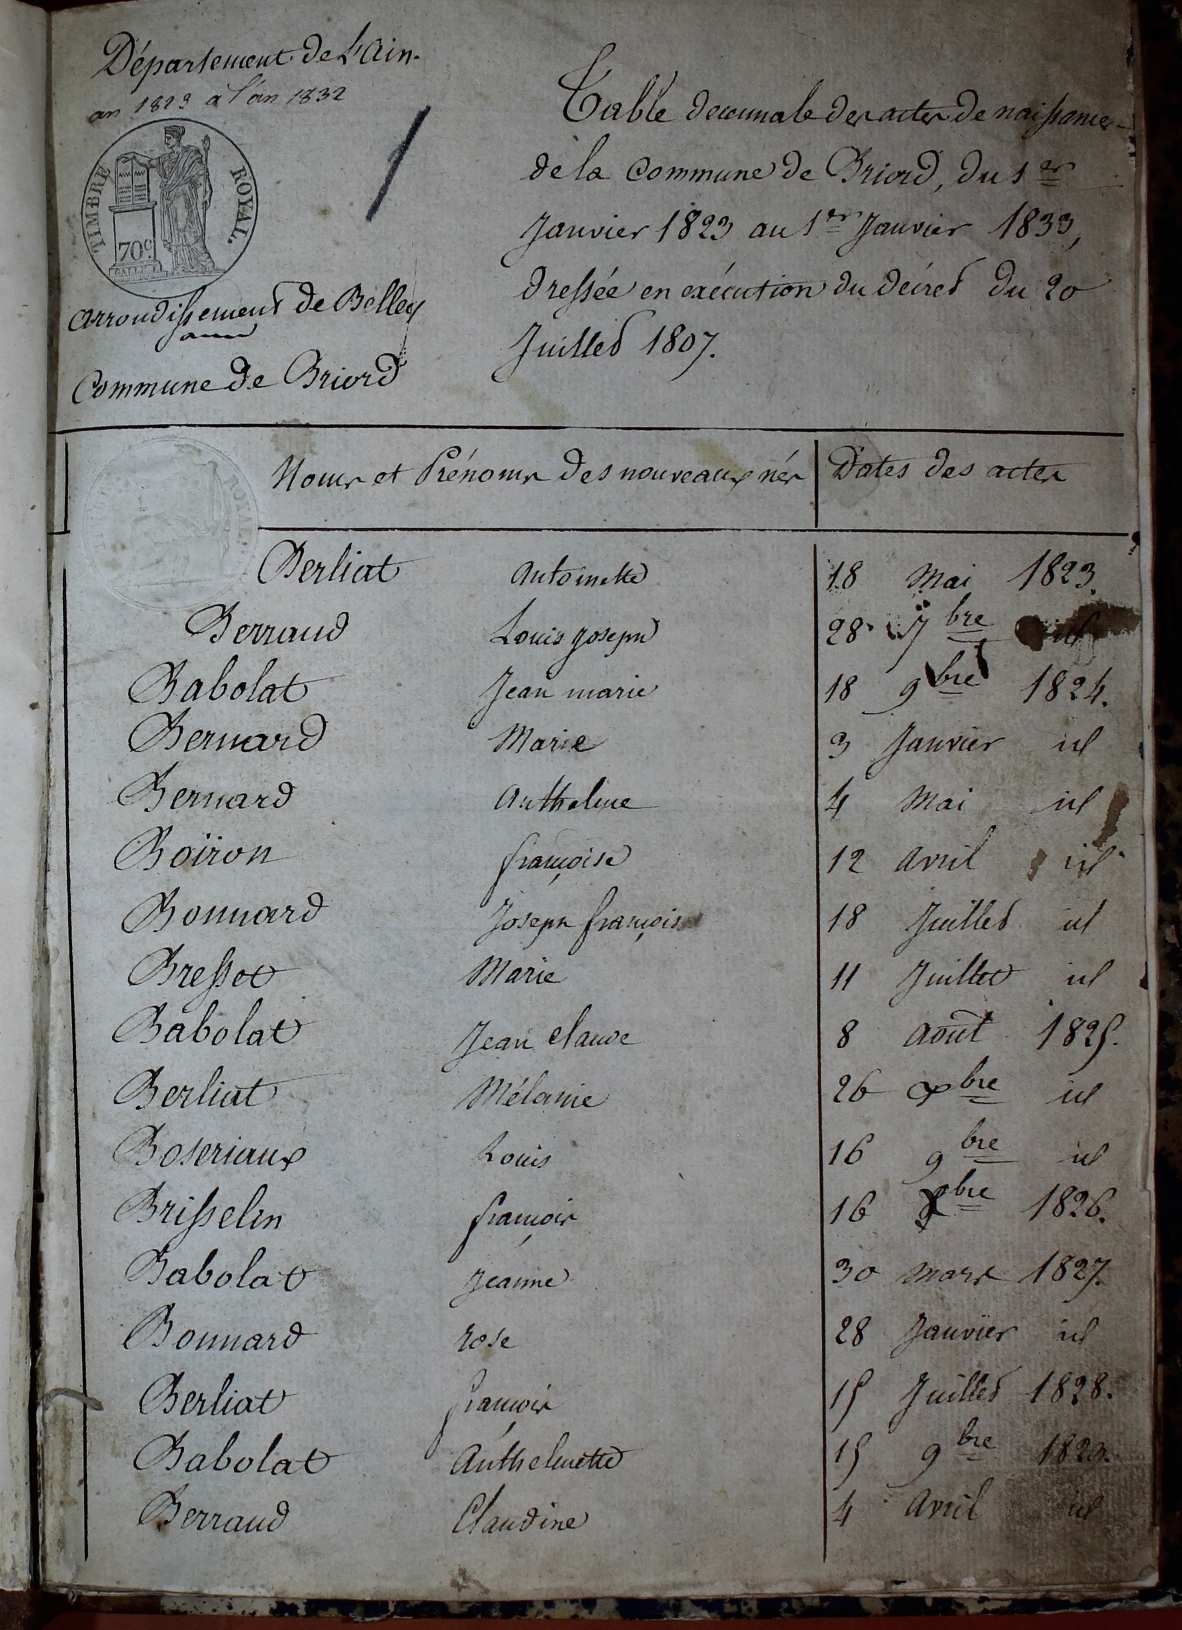 Département de L'Ain.
an 1823 à l'an 1832
TIMBRE ROYAL.
70c
Arrondissement de Belley
Commune de Briord
Table décennale des actes de naissance
de la Commune de Briord, du 1er
Janvier 1823 au 1er Janvier 1833,
dressée en exécution du décret du 20
Juillet 1807.
Noms et Prénoms des nouveaux nés Dates des actes
Berliat Antoinette 18 Mai 1823.
Berraud Louis Joseph 28 7bre id
Babolat Jean marie 18 9bre 1824.
Bernard Marie 3 Janvier id
Bernard Anthelme 4 Mai id
Boïron françoise 12 Avril id
Bonnard Joseph françois 18 Juillet id
Bresset Marie 11 Juillet id
Babolat Jean Claude 8 Août 1825.
Berliat Mélanie 26 Xbre id
Boseriaux Louis 16 9bre id
Brisselin françois 16 bre 1826.
Babolat Jeanne 30 Mars 1827.
Bonnard rose 28 Janvier id
Berliat françois 15 Juillet 1828.
Babolat Anthelmette 15 9bre
Berraud Claudine 4 Avril id